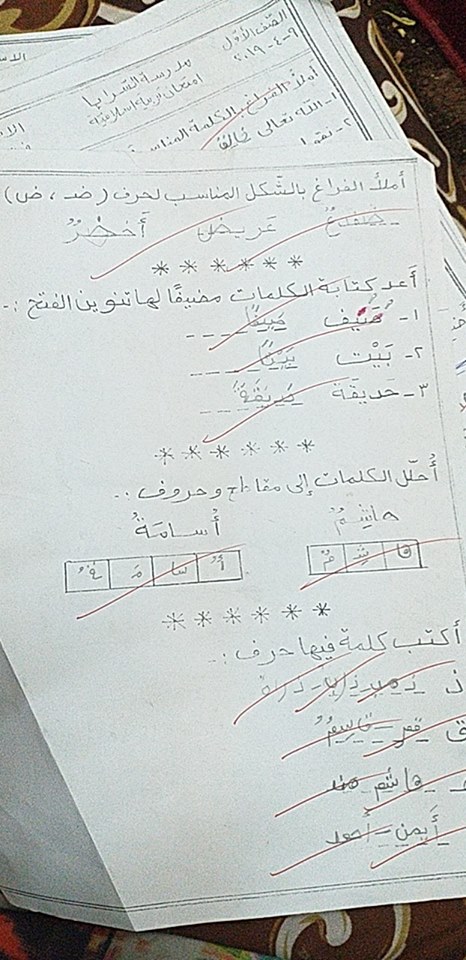 الصّف الأوّل
٩-٤-٢٠١٩
مدرسة السّرايا
امتحان تربية اسلاميّة
أملأ الفراغ بالكلمة المناسبة
١- الله تعالى خالق
٢-
أملأ الفراغ بالشّكل المناسب لحرف ( ضـ ، ض )
ضفدعٌ عريض أخضرٌ
******
أعد كتابة الكلمات مضيفًا لها تنوين الفتح :.
١- ضَيف ضيفًا
٢- بَيْت بيتًا
٣- حديقَة حديقةً
******
أُحلّل الكلمات إلى مقاطع وحروف :.
هاشِمٌ أُسامَةُ
ها شِـ مٌ
أُ سا مَـ ةُ
******
أكتب كلمة فيها حرف :.
ذ
ق قمر - قاسِمٌ
هاشم هند
أَيمن - أحمد